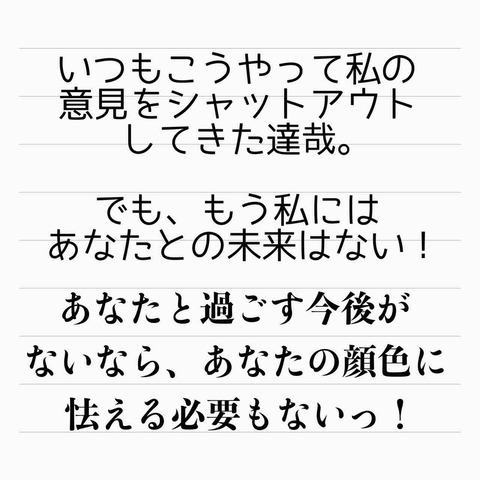 いつもこうやって私の
意見をシャットアウト
してきた達哉。
でも、もう私には
あなたとの未来はない！
あなたと過ごす今後が
ないなら、あなたの顔色に
怯える必要もないっ！